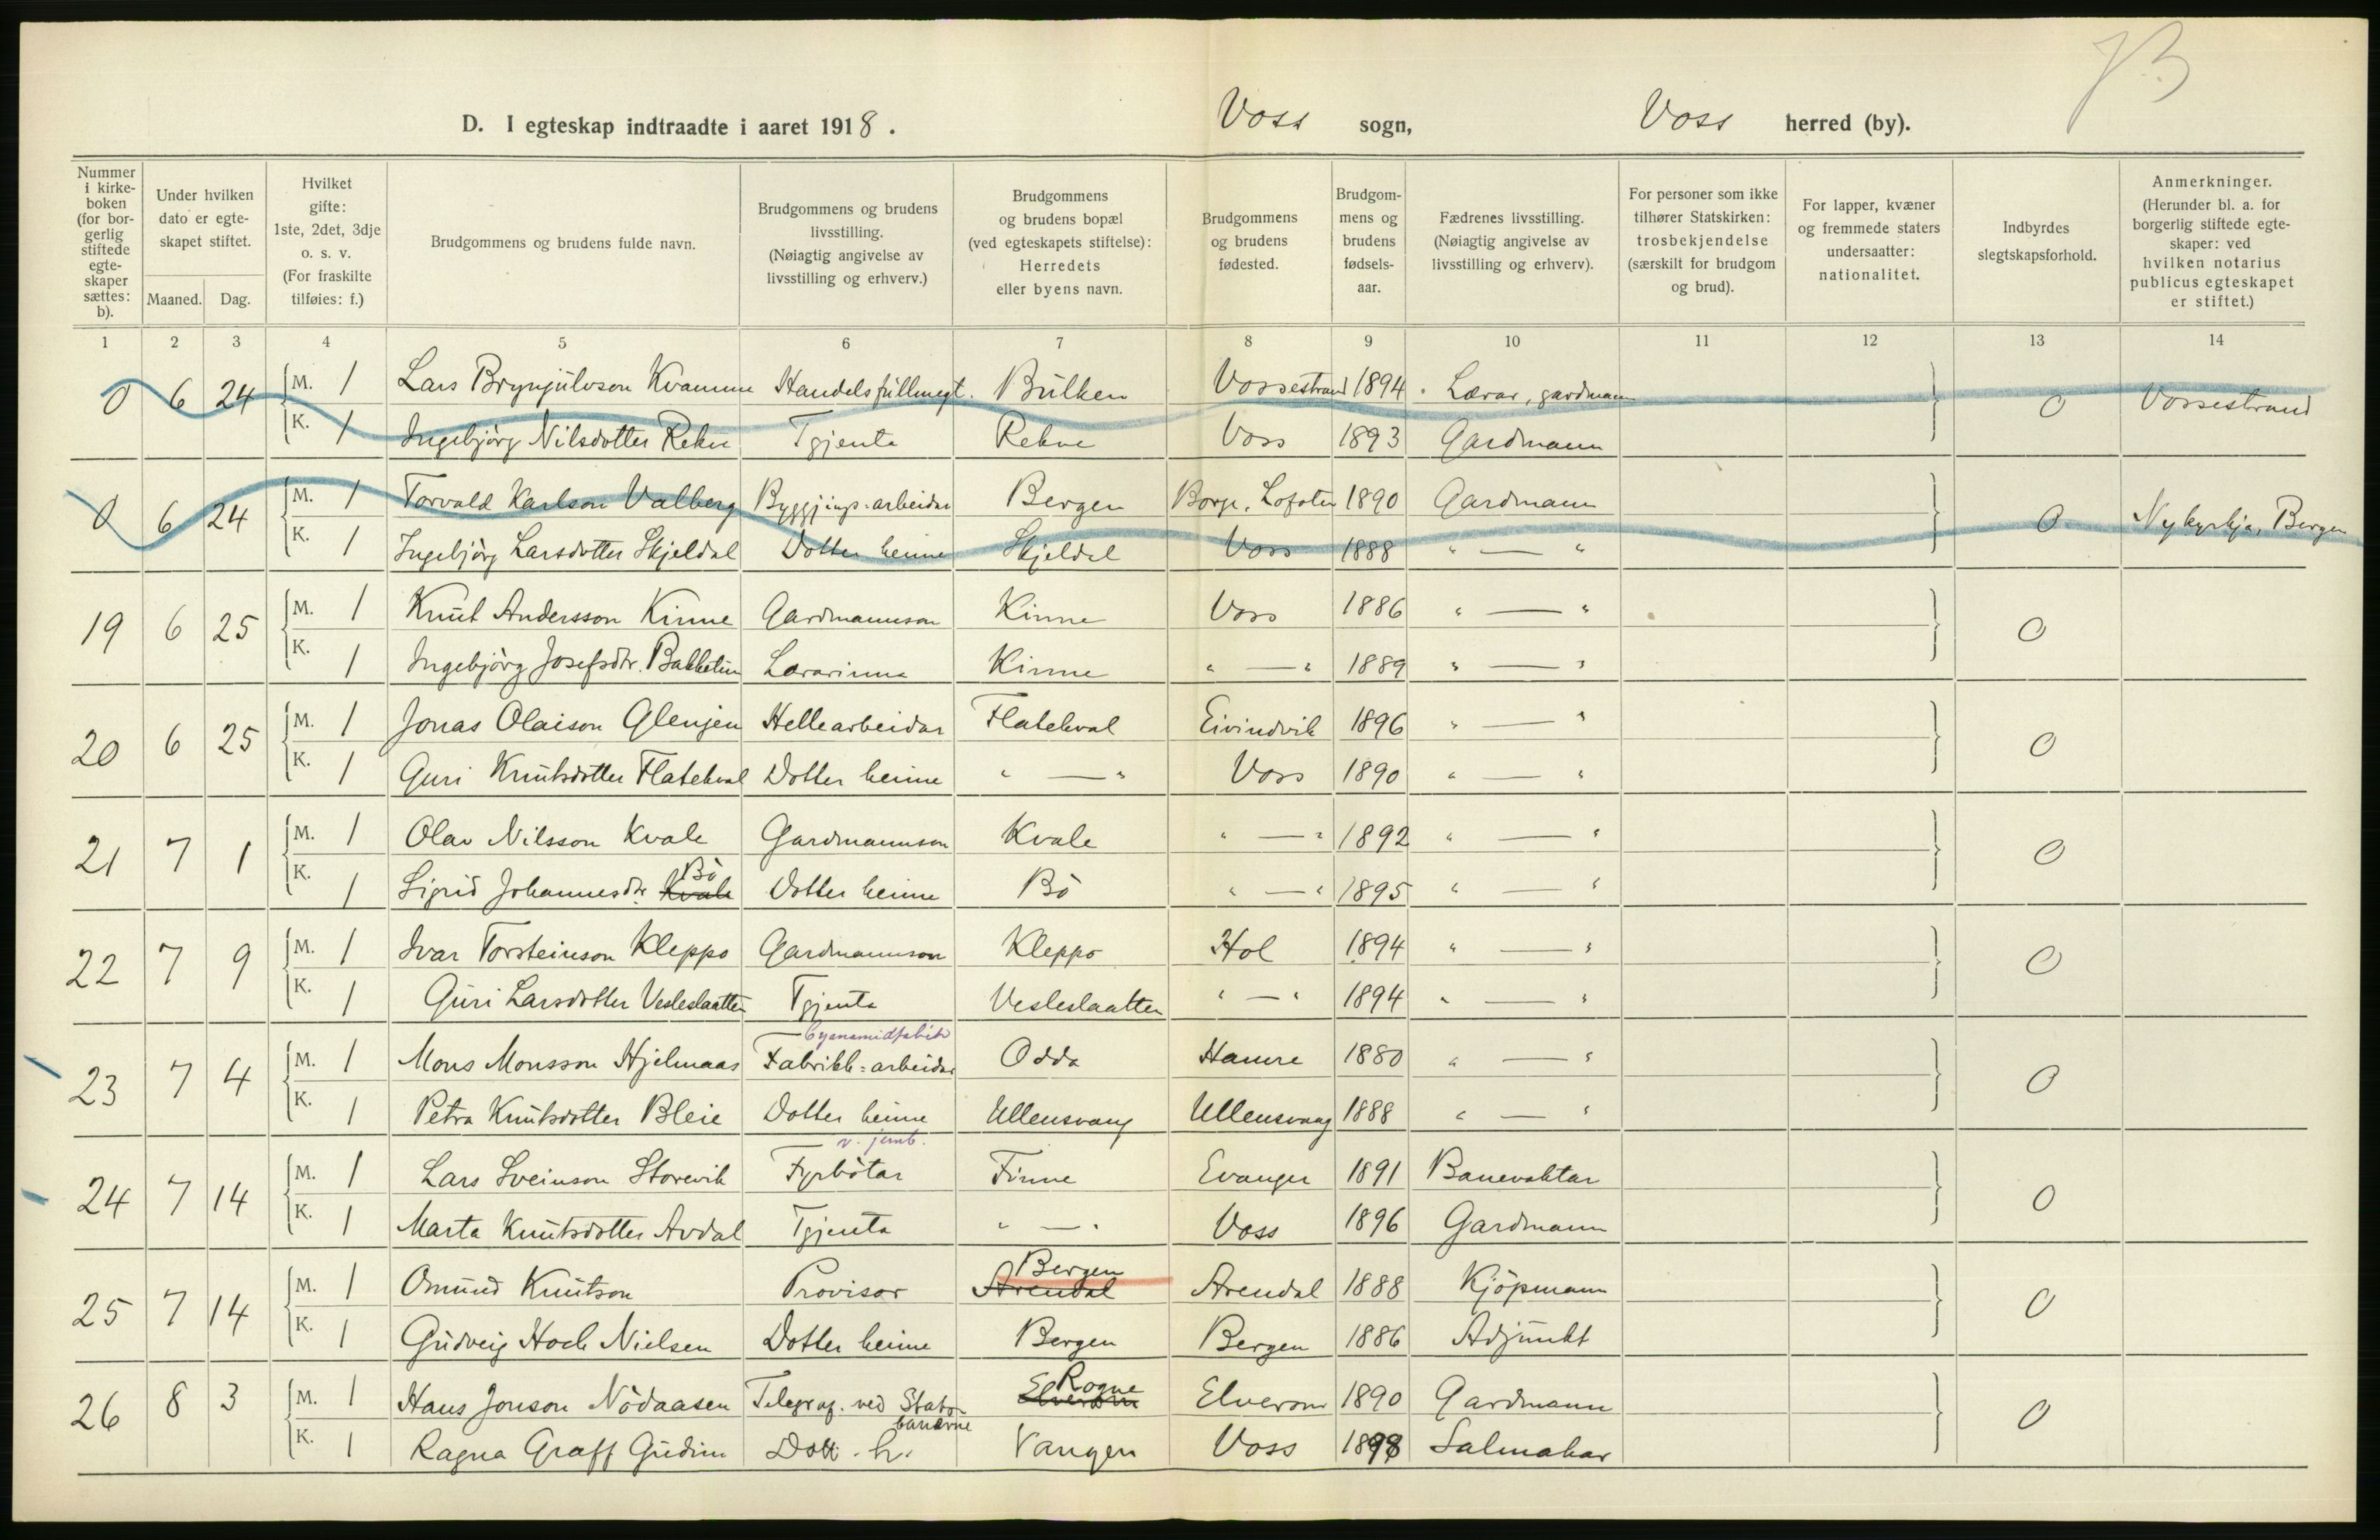 73
D. I egteskap indtraadte i aaret 1918. Voss sogn, Voss herred (by).
Nummer i kirkeboken (for borgerlig stiftede egteskaper sættes: b).
Under hvilken dato er egteskapet stiftet.
Maaned. Dag.
Hvilket gifte: 1ste, 2det, 3dje o. s. v. (For fraskilte tilføies: f.)
Brudgommens og brudens fulde navn.
Brudgommens og brudens livsstilling. (Nøiagtig angivelse av livsstilling og erhverv.)
Brudgommens og brudens bopæl (ved egteskapets stiftelse): Herredets eller byens navn.
Brudgommens og brudens fødested.
Brudgommens og brudens fødselsaar.
Fædrenes livsstilling. (Nøiagtig angivelse av livsstilling og erhverv).
For personer som ikke tilhører Statskirken: trosbekjendelse (særskilt for brudgom og brud).
For lapper, kvæner og fremmede staters undersaatter: nationalitet.
Indbyrdes slegtskapsforhold.
Anmerkninger. (Herunder bl. a. for borgerlig stiftede egteskaper: ved hvilken notarius publicus egteskapet er stiftet.)
1 2 3 4 5 6 7 8 9 10 11 12 13 14
0 6 24 M. 1 Lars Brynjulvson Kvamme Handelsfullmegt. Bulken Vossestrand 1894 Lærar, gardmann 0 Vossestrand
K. 1 Ingebjörg Nilsdotter Rekve Tgjenta Rekve Voss 1893 Gardmann
0 6 24 M. 1 Torvald Karlson Valberg Byggjings=arbeidar Bergen Borge, Lofoten 1890 Gardmann 0 Nykyrkja, Bergen
K. 1 Ingebjörg Larsdotter Skjeldal Dotter heime Skjeldal Voss 1888 " — "
19 6 25 M. 1 Knut Andersson Kinne Gardmannson Kinne Voss 1886 " — " 0
K. 1 Ingebjörg Josefsdtr. Bakketun Lærarinna Kinne " — " 1889 " — "
20 6 25 M. 1 Jonas Olaison Glenjen Hellearbeidar Flatekval Eivindvik 1896 " — " 0
K. 1 Guri Knutsdotter Flatekval Dotter heime " — " Voss 1890 " — "
21 7 1 M. 1 Olav Nilsson Kvale Gardmannson Kvale " — " 1892 " — " 0
K. 1 Sigrid Johannesdtr. Kvale Bö Dotter heime Bö " — " 1895 " — "
22 7 9 M. 1 Ivar Torsteinson Kleppo Gardmannson Kleppo Hol 1894 " — " 0
K. 1 Guri Larsdotter Vesleslaatten Tgjenta Vesleslaatten " — " 1894 " — "
cyanamidfabrik
23 7 4 M. 1 Mons Monsson Hjelmaas Fabrikk=arbeidar Odda Hamre 1880 " — " 0
K. 1 Petra Knutsdotter Bleie Dotter heime Ullensvang Ullensvang 1888 " — "
v. jernb.
24 7 14 M. 1 Lars Sveinson Storevik Fyrbötar Finne Evanger 1891 Banevaktar 0
K. 1 Marta Knutsdotter Avdal Tgjenta " — " Voss 1896 Gardmann
25 7 14 M. 1 Omund Knutson Provisor Arendal Bergen Arendal 1888 Kjöpmann 0
K. 1 Gudveig Hoch Nielsen Dotter heime Bergen Bergen 1886 Adjunkt
26 8 3 M. 1 Hans Jonson Nödaasen Telegraf. ved Statsbanerne Elverum Rogne Elverom 1890 Gardmann 0
K. 1 Ragna Graff Gudim Dott. h. Vangen Voss 1898 Salmakar